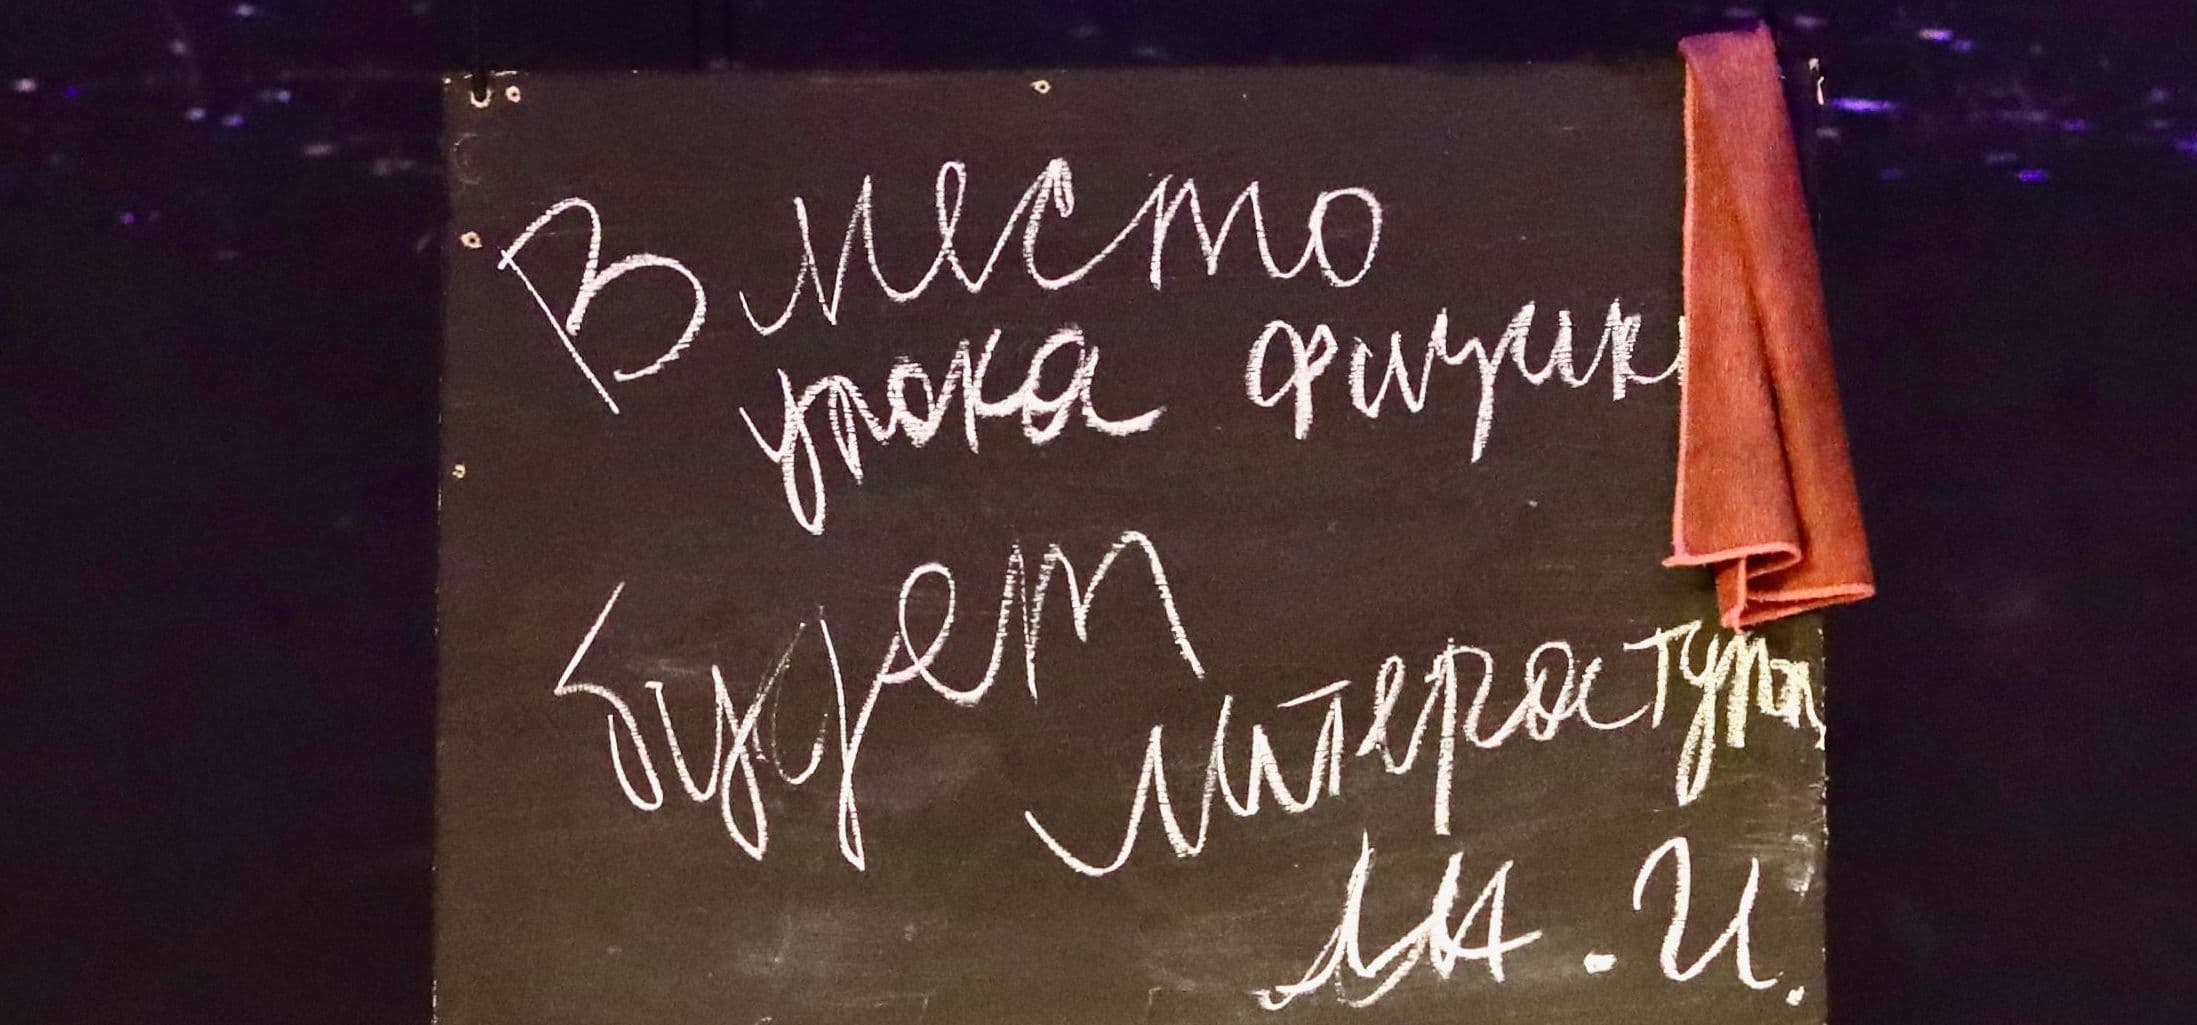 Вместо
урока физики
будет
литература
М.И.